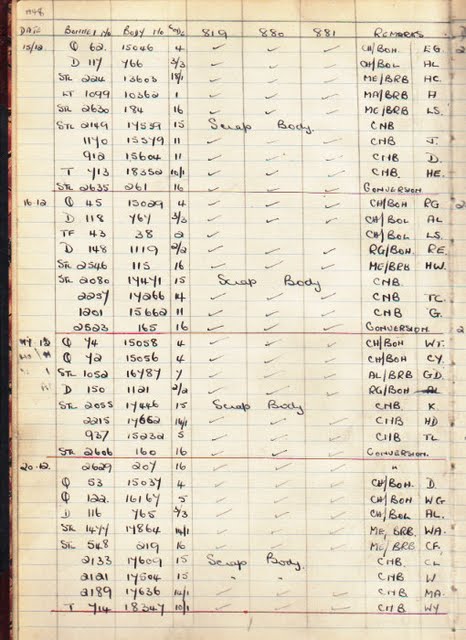 1948
DATE BONNET No BODY No CODE 819 880 881 REMARKS
15/12 Q 62 15046 4 ✓ ✓ ✓ CH/BOH EG
D 117 766 3/3 ✓ ✓ ✓ CH/BOL AL
STL 224 13603 18/1 ✓ ✓ ✓ ME/BRB HC.
LT 1099 10362 1 ✓ ✓ ✓ MA/BRB H
STL 2630 184 16 ✓ ✓ ✓ MC/BRB LS.
STL 2149 17539 15 Scrap Body. CNB
1170 15579 11 ✓ ✓ ✓ CNB J.
912 15604 11 ✓ ✓ ✓ CNB D.
T 713 18352 10/1 ✓ ✓ ✓ CNB. HE.
STL 2635 261 16 ✓ ✓ ✓ CONVERSION
16.12 Q 45 15029 4 ✓ ✓ ✓ CH/BOH RG
D 118 767 3/3 ✓ ✓ ✓ CH/BOL AL
TF 43 38 2 ✓ ✓ CH/BOL LS.
D 148 1119 2/2 ✓ ✓ ✓ RG/BOH. RE.
STL 2546 115 16 ✓ ✓ ✓ ME/BRB HW.
STL 2080 17471 15 Scrap Body CNB.
2257 17266 14 ✓ ✓ ✓ CNB TC.
1201 15662 11 ✓ ✓ ✓ CNB G.
2523 165 16 ✓ ✓ ✓ CONVERSION.
Q 74 15058 4 ✓ ✓ ✓ CH/BOH WT.
Q 72 15056 4 ✓ ✓ ✓ CH/BOH CY.
STL 1052 16787 7 ✓ ✓ ✓ AL/BRB GD.
D 150 1121 2/2 ✓ ✓ ✓ RG/BOH
STL 2055 17446 15 Scrap Body CNB. K.
2215 17662 14/1 ✓ ✓ ✓ CNB HD
937 15232 5 ✓ ✓ ✓ CNB TL
STL 2606 160 16 ✓ ✓ ✓ CONVERSION.
20.12. 2629 207 16 ✓ ✓ ✓ "
Q 53 15037 4 ✓ ✓ ✓ CH/BOH. D.
Q 122. 16167 5 ✓ ✓ ✓ CH/BOH WG
D 116 765 3/3 ✓ ✓ ✓ CH/BOL AL.
STL 1477 17864 14/1 ✓ ✓ ✓ ME, BRB. WA.
STL 548 219 16 ✓ ✓ ✓ ME/BRB CF.
2133 17609 15 Scrap Body. CNB. CL
2121 17504 15 " " CNB W
2189 17636 14/1 ✓ ✓ ✓ CNB MA.
T 714 18347 10/1 ✓ ✓ ✓ CNB WY